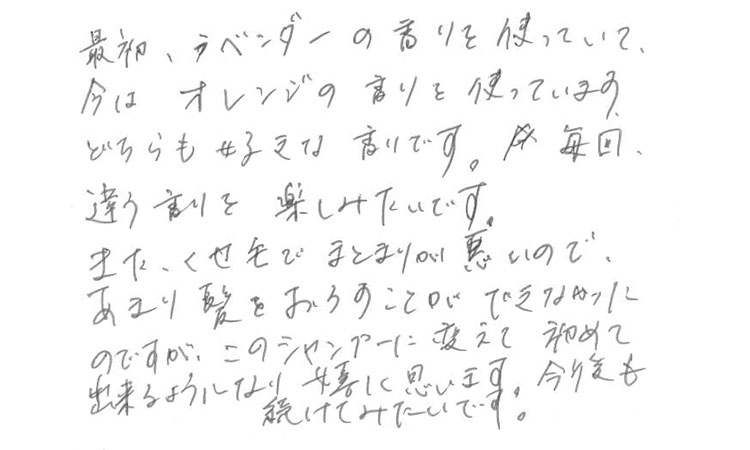 最初、ラベンダーの香りを使っていて、
今は オレンジの香りを使っています。
どちらも好きな香りです。毎回、
違う香りを 楽しみたいです。
また、くせ毛でまとまりが悪いので、
あまり髪をおろすことができなかった
のですが、このシャンプーに変えて 初めて
出来るようになり 嬉しく思います。今後も
続けてみたいです。